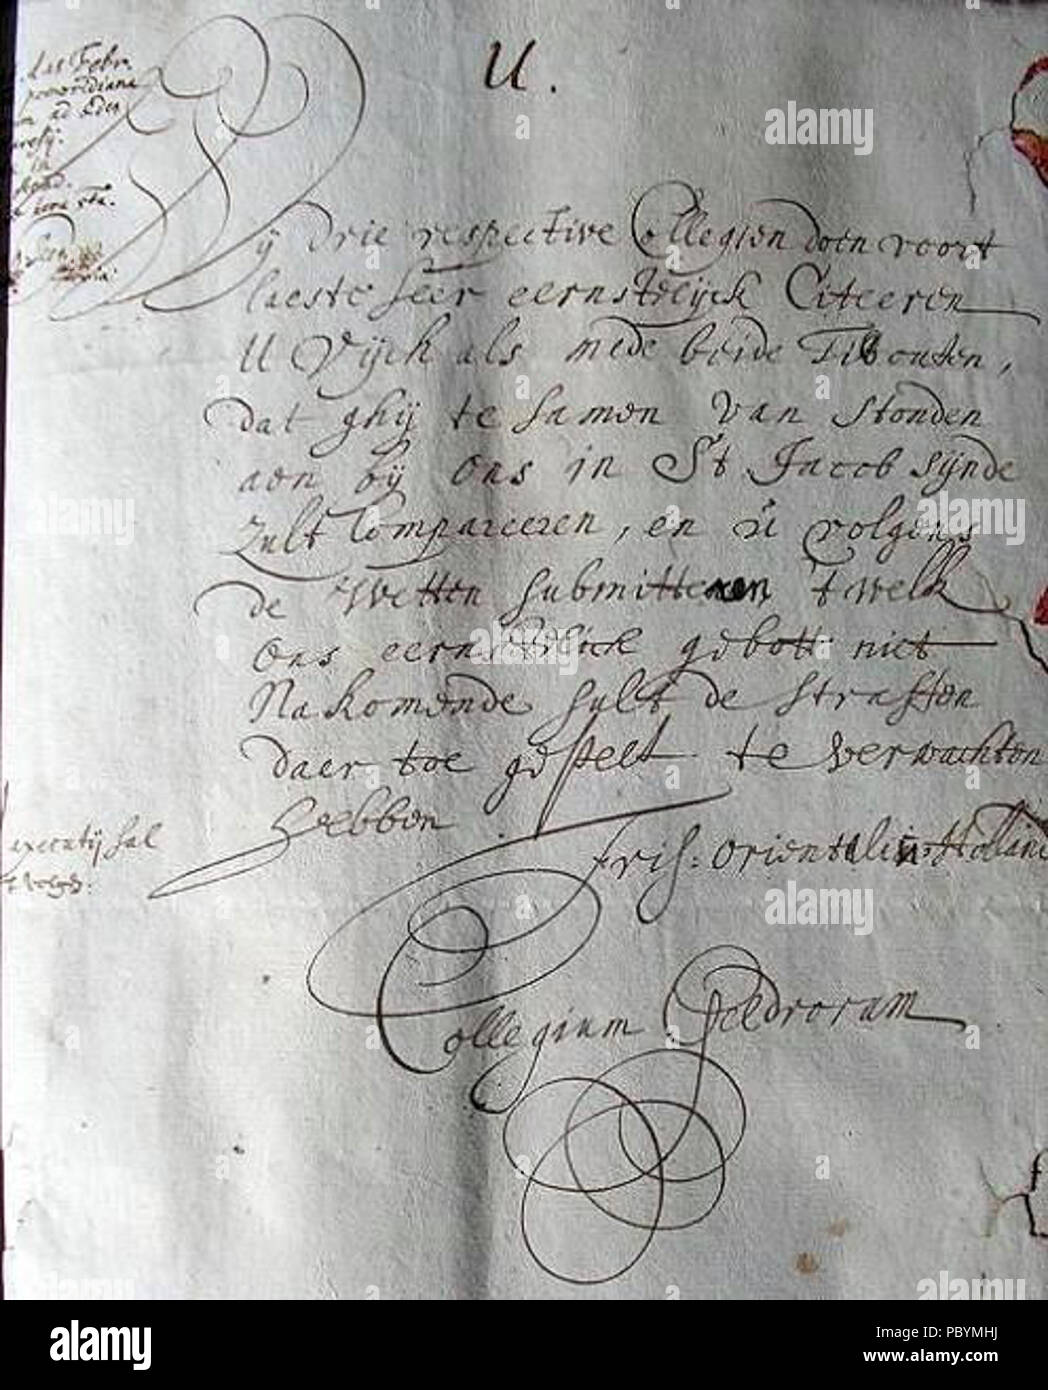 U.
das Febr.
pomeridiana
ad Edes
Wij drie respective Collegien doen voort
laeste seer eernstelijck Citeeren
U Vijch als mede beide Tibouten,
dat ghij te samen van stonden
aen bij ons in St Jacob sijnde
zult Compareeren, en u volgens
de wetten submitteren, 't welk
ons eernstelick gebott niet
Nakomende sult de straffen
daer toe gestelt te verwachten
hebben
executij sal
volgen.
fris: orientali: Hollan
Collegium Geldrorum
alamy
alamy
Image ID: PBYMHJ
www.alamy.com